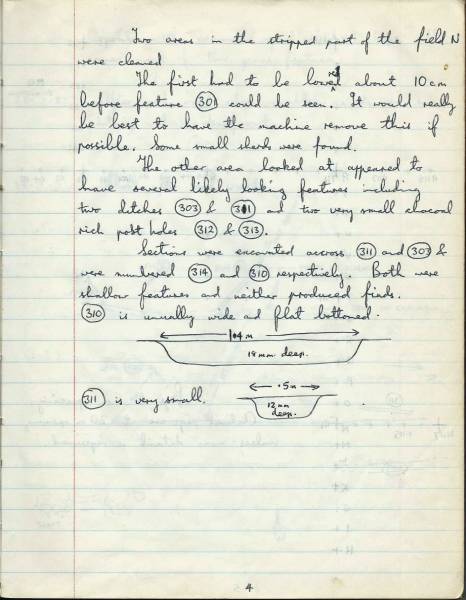 Two areas in the stripped part of the field N
were cleaned
The first had to be lowered about 10cm
before feature 301 could be seen. It would really
be best to have the machine remove this if
possible. Some small sherds were found.
The other area looked at appeared to
have several likely looking features including
two ditches 303 & 311 and two very small chacoal
rich post holes 312 & 313.
Sections were excavated accross 311 and 303 &
were numbered 314 and 310 respectively. Both were
shallow features and neither produced finds.
310 is unually wide and flat bottomed.
1.04 m
18mm deep.
311 is very small.
.5m
12mm
deep.
4